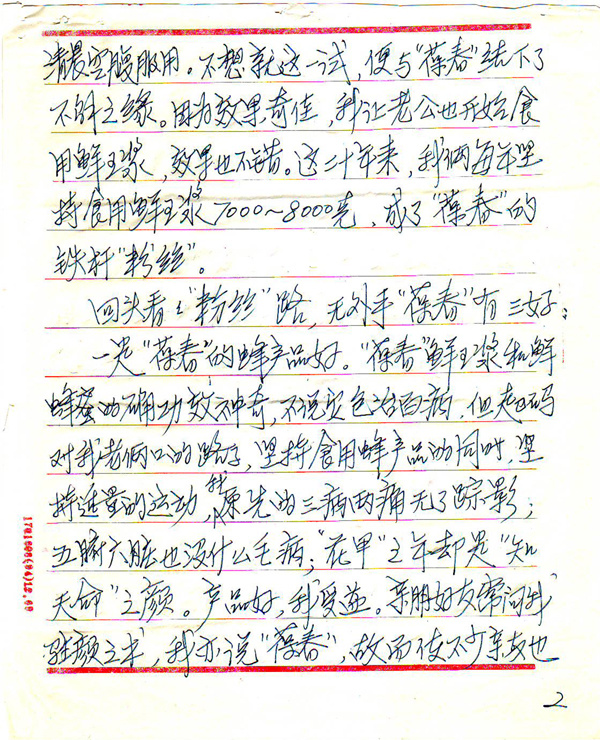 清晨空腹服用。不想就这一试，便与“葆春”结下了
不解之缘。因为效果奇佳，我让老公也开始食
用鲜王浆，效果也不错。这二十年来，我俩每年坚
持食用鲜王浆7000~8000克，成了“葆春”的
铁杆“粉丝”。
回头看这“粉丝”路，无外乎“葆春”有三好：
一是“葆春”的蜂产品好。“葆春”鲜王浆和鲜
蜂蜜的确功效神奇，不说灾包治百病，但起码
对我老俩口的路子，坚持食用蜂产品的同时，坚
持适量的运动，我原先的三病两痛无了踪影；
五脏六腑也没什么毛病，“花甲”之年却是“知
天命”之颜。产品好，我受益。亲朋好友常问我
驻颜之术，我亦说“葆春”，故而使不少亲友也
2
1701508(94)12.69